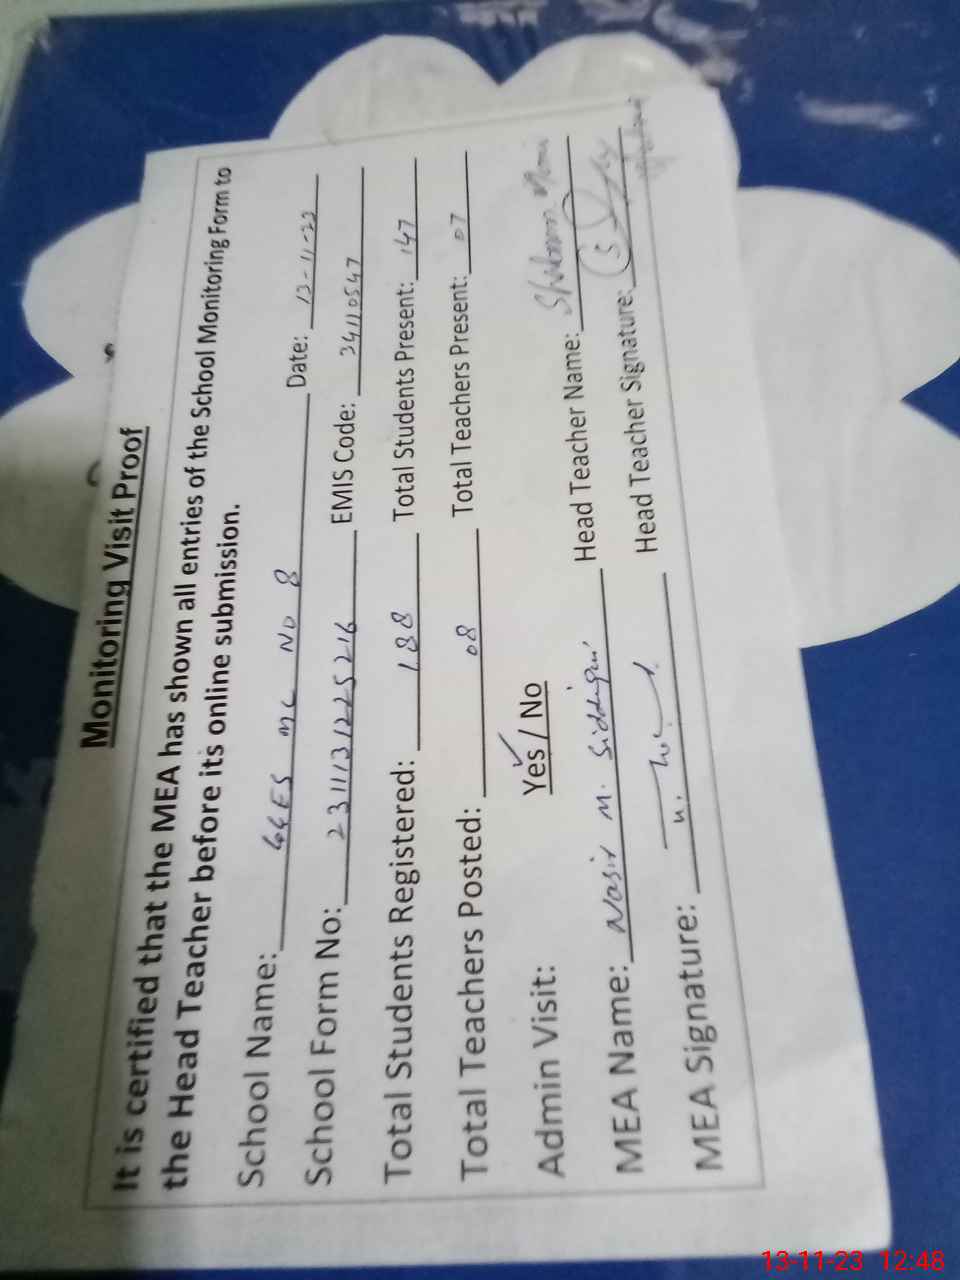 Monitoring Visit Proof
It is certified that the MEA has shown all entries of the School Monitoring Form to
the Head Teacher before its online submission.
School Name: GGES MC NO 8 Date: 13-11-23
School Form No: 2311131225216 EMIS Code: 34110547
Total Students Registered: 188 Total Students Present: 147
Total Teachers Posted: 08 Total Teachers Present: 07
Admin Visit: Yes / No
MEA Name: Nasir M. Siddiqui Head Teacher Name:
MEA Signature: Head Teacher Signature:
13-11-23 12:48